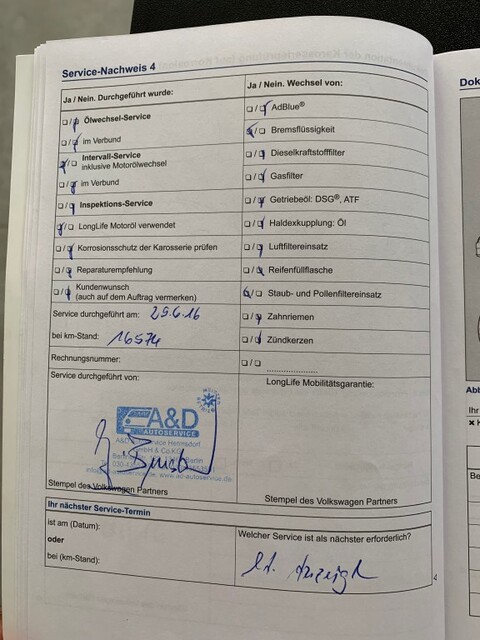 Service-Nachweis 4
Ja / Nein. Durchgeführt wurde:
Ölwechsel-Service
im Verbund
Intervall-Service
inklusive Motorölwechsel
im Verbund
Inspektions-Service
LongLife Motoröl verwendet
Korrosionsschutz der Karosserie prüfen
Reparaturempfehlung
Kundenwunsch
(auch auf dem Auftrag vermerken)
Service durchgeführt am: 29.6.16
bei km-Stand: 16574
Rechnungsnummer:
Service durchgeführt von:
A&D
AUTOSERVICE
Stempel des Volkswagen Partners
Ja / Nein. Wechsel von:
AdBlue®
Bremsflüssigkeit
Dieselkraftstofffilter
Gasfilter
Getriebeöl: DSG®, ATF
Haldexkupplung: Öl
Luftfiltereinsatz
Reifenfüllflasche
Staub- und Pollenfiltereinsatz
Zahnriemen
Zündkerzen
LongLife Mobilitätsgarantie:
Stempel des Volkswagen Partners
Ihr nächster Service-Termin
ist am (Datum):
oder
bei (km-Stand):
Welcher Service ist als nächster erforderlich?
lt. Anzeige
4
Dok
Abb
Ihr
Be